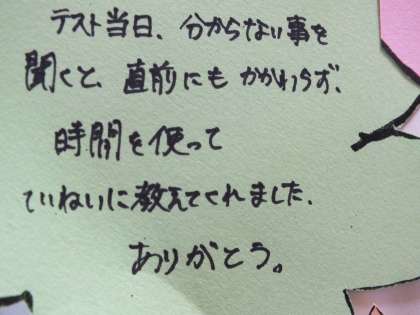 テスト当日、分からない事を
聞くと、直前にもかかわらず、
時間を使って
ていねいに教えてくれました。
ありがとう。